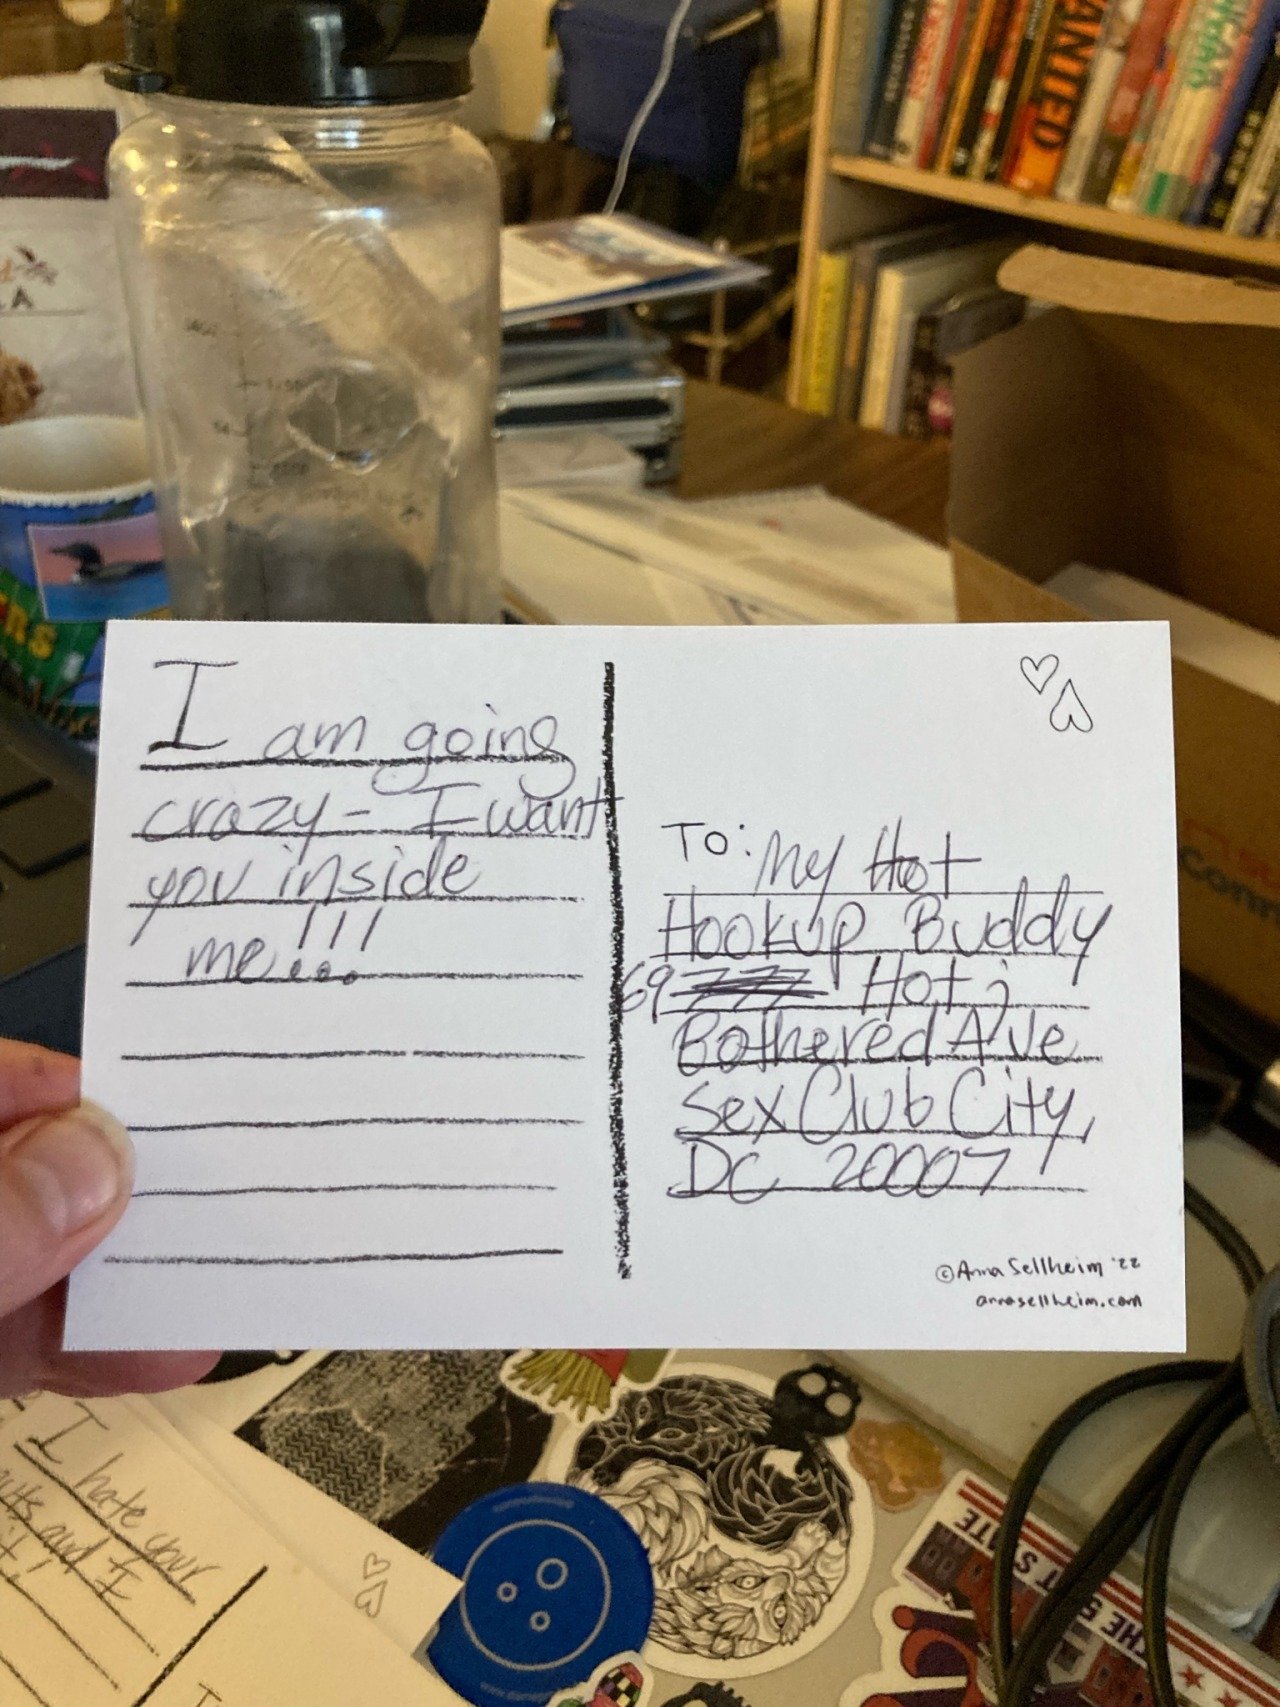 WANTED
I am going
crazy - I want
you inside
me...!!!
TO: My Hot
Hookup Buddy
69 Hot &
Bothered Ave
Sex Club City,
DC 20007
©Anna Sellheim '22
annasellheim.com
I hate your
guts and I